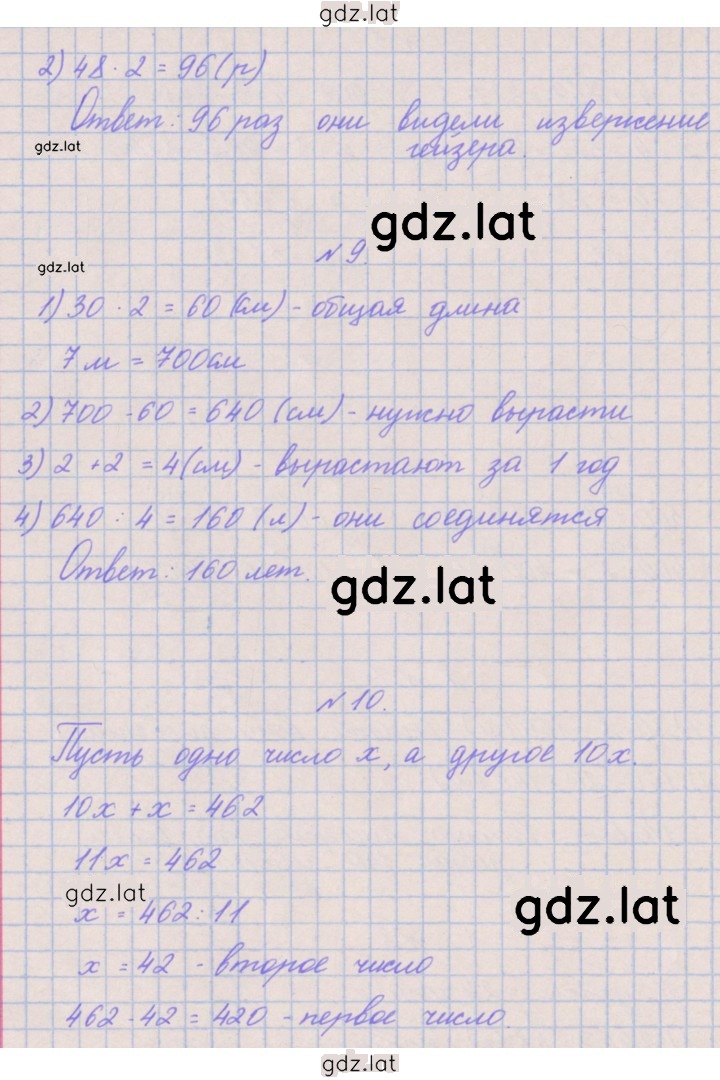 gdz.lat
2) 48 · 2 = 96 (р)
Ответ: 96 раз они видели извержение
gdz.lat
гейзера.
gdz.lat
№ 9.
gdz.lat
1) 30 · 2 = 60 (см) - общая длина
7 м = 700 см
2) 700 - 60 = 640 (см) - нужно вырасти
3) 2 + 2 = 4 (см) - вырастают за 1 год
4) 640 : 4 = 160 (л) - они соединятся
Ответ: 160 лет.
gdz.lat
№ 10.
Пусть одно число x, а другое 10x.
10x + x = 462
11x = 462
gdz.lat
x = 462 : 11
gdz.lat
x = 42 - второе число
462 - 42 = 420 - первое число.
gdz.lat